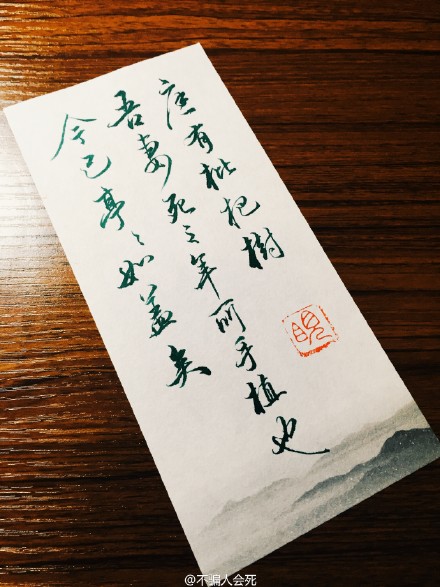 庭有枇杷樹
吾妻死之年所手植也
今已亭〻如盖矣
@不骗人会死